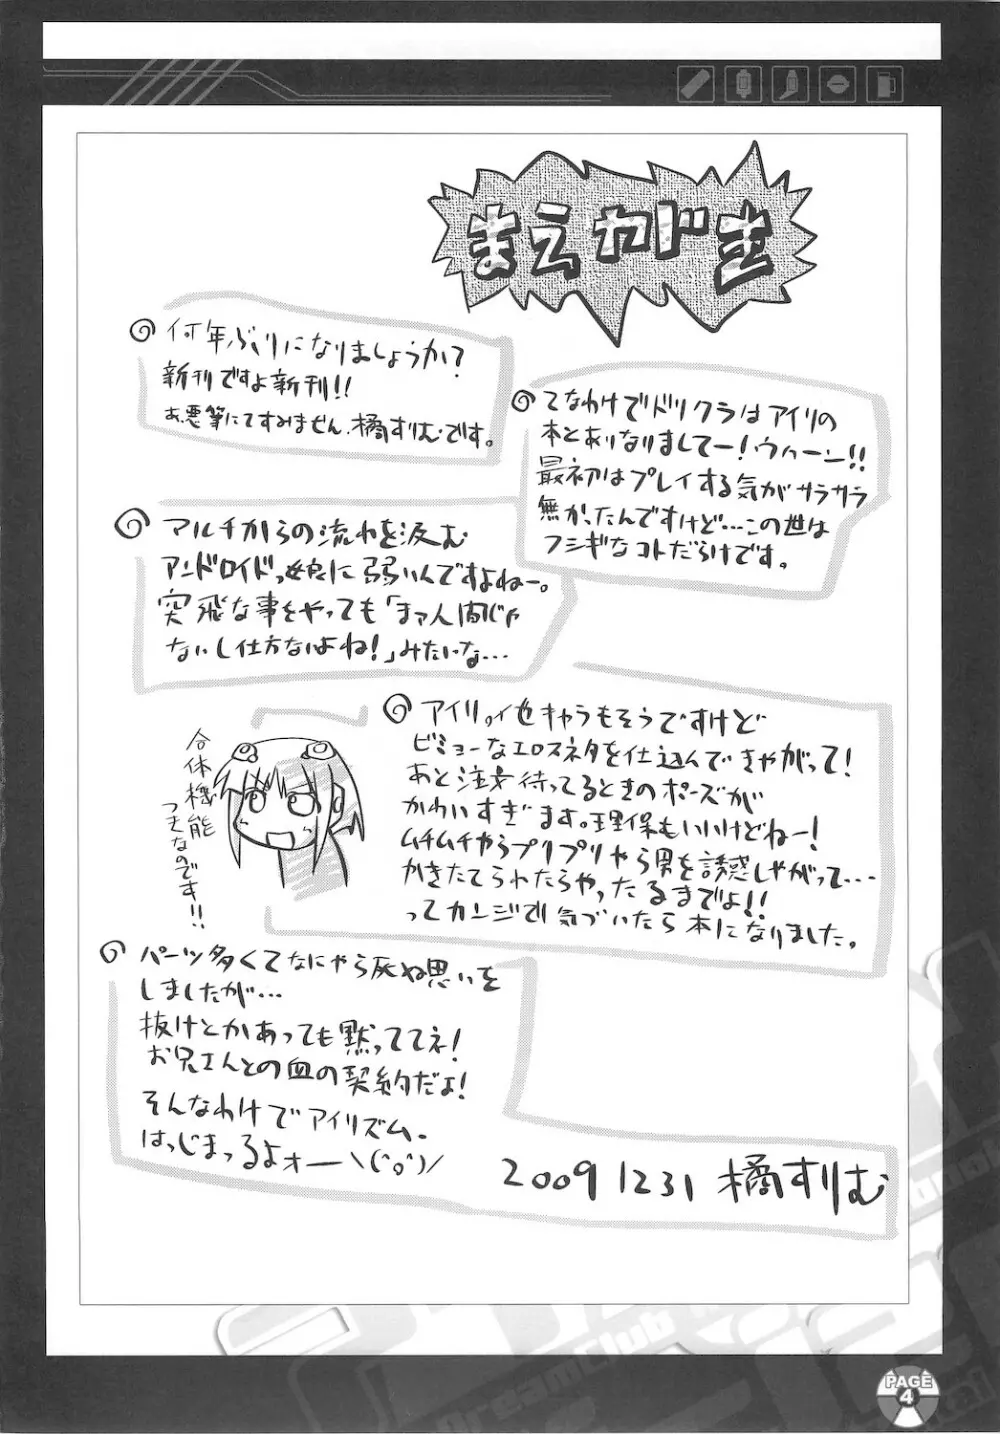 まえがき
何年ぶりになりましょうか？
新刊ですよ新刊！！
お、悪筆にてすみません、橘すりむです。
てなわけでドリクラはアイリの
本とありなりましてー！ウハーン！！
最初はプレイする気がサラサラ
無かったんですけど…この世は
フシギなコトだらけです。
マルチからの流れを汲む
アンドロイドっ娘に弱いんですよねー。
突飛な事をやっても「まァ人間じゃ
ないし仕方ないよね！」みたいな…
アイリの他キャラもそうですけど
ビミョーなエロスネタを仕込んできやがって！
あと注文待ってるときのポーズが
かわいすぎます。理保もいいけどねー！
ムチムチやらプリプリやら男を誘惑しやがって…
かきたてられたらやったるまでよ！！
ってカンジで気づいたら本になりました。
合体機能
つきなのです！！
パーツ多くてなにやら死ぬ思いを
しましたが…
抜けとかあっても黙っててネ！
お兄さんとの血の契約だよ！
そんなわけでアイリズム、
はっじまっるよォー＼(^o^)／
2009 1231 橘すりむ
PAGE
4